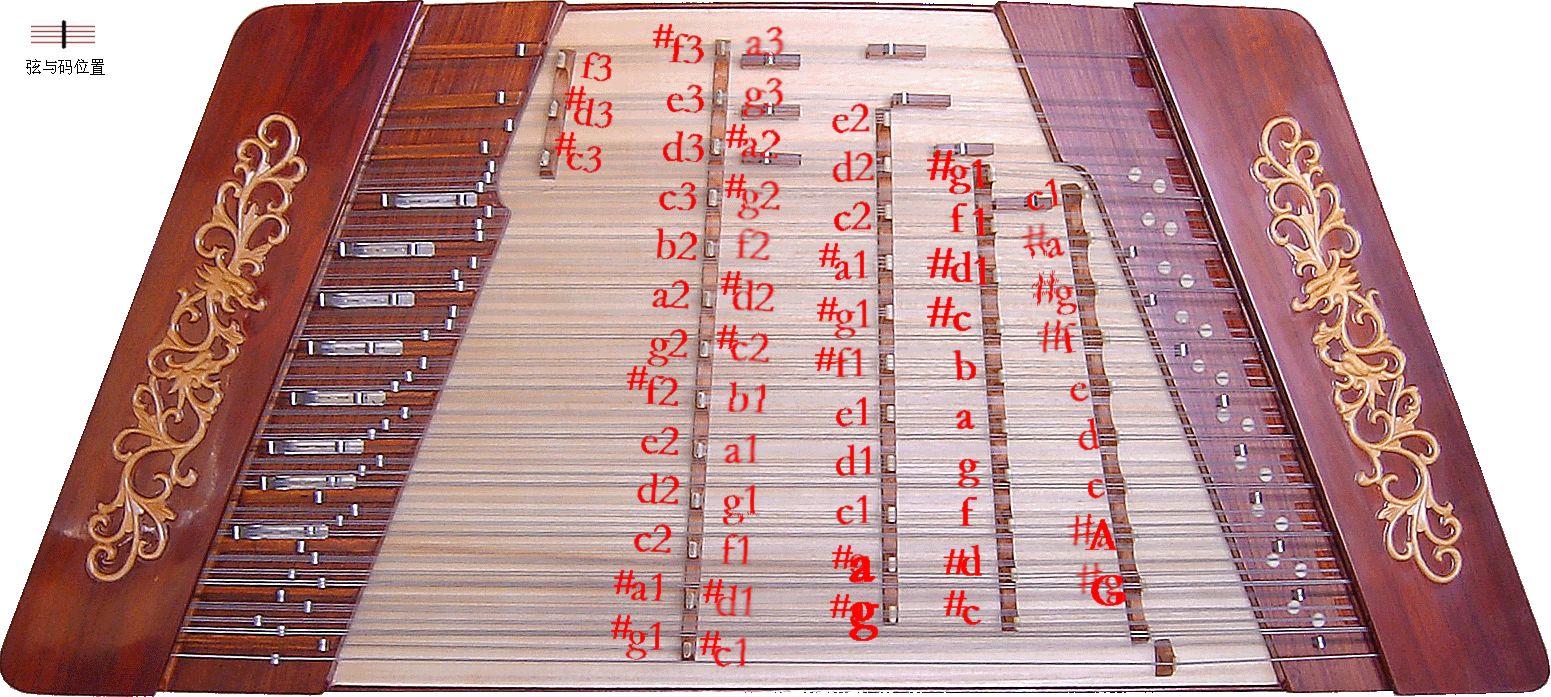 弦与码位置
f3
#d3
#c3
#f3
e3
d3
c3
b2
a2
g2
#f2
e2
d2
c2
#a1
#g1
a3
g3
#a2
#g2
f2
#d2
#c2
b1
a1
g1
f1
#d1
#c1
e2
d2
c2
#a1
#g1
#f1
e1
d1
c1
#a
#g
#g1
f1
#d1
#c
b
a
g
f
#d
#c
c1
#a
#g
#f
e
d
#A